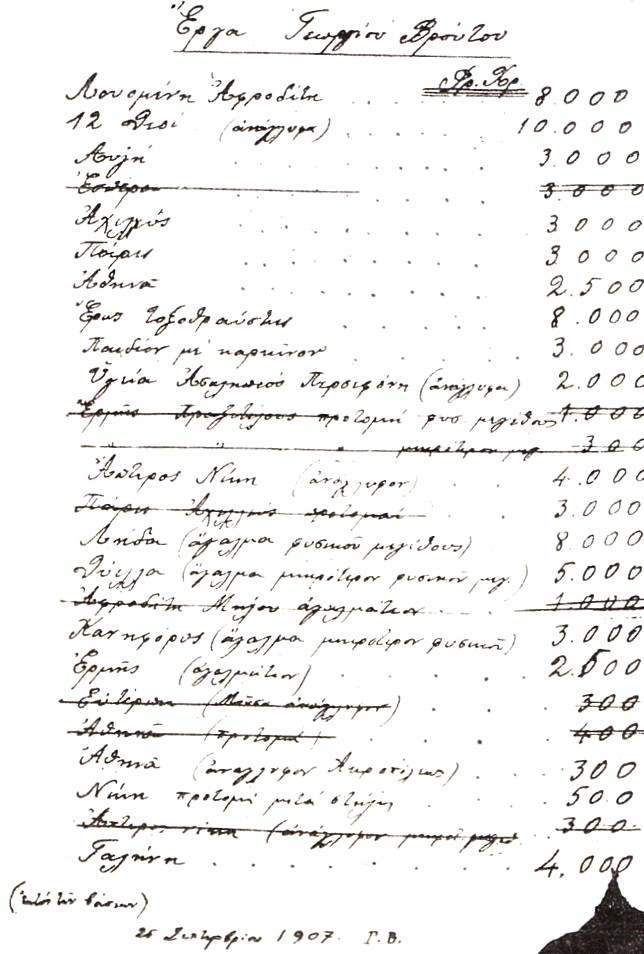 Ἔργα Γεωργίου Βρούτου
Δρ. Χρ.
Λουομένη Ἀφροδίτη . . . . 8.000
12 Θεοί (ἀνάγλυφα) . . . . 10.000
Αὐγή . . . . 3.000
Ἕσπερος 3.000
Ἀχιλλεύς . . . . 3.000
Πάρις . . . . 3.000
Ἀθηνᾶ . . . . 2.500
Ἔρως τοξοθραύστης . . . . 8.000
Παιδίον μὲ καρκίνον . . . . 3.000
Ὑγεία Ἀσκληπιός Περσεφόνη (ἀνάγλυφα) 2.000
Ἑρμῆς Πραξιτέλους προτομή φυσ. μεγέθους 1.000
" " " μικρότερον μεγ. 300
Ἄπτερος Νίκη (ἀνάγλυφον) . . 4.000
Πάρις Ἀχιλλεύς προτομαί 3.000
Λήδα (ἄγαλμα φυσικοῦ μεγέθους) 8.000
Θύελλα (ἄγαλμα μικρότερον φυσικοῦ μεγ.) 5.000
Ἀφροδίτη Μήλου ἀγαλμάτιον . . 1.000
Κανηφόρος (ἄγαλμα μικρότερον φυσικοῦ) 3.000
Ἑρμῆς (ἀγαλμάτιον) . . . . 2.500
Εὐτέρπη (ἀνάγλυφον) . . . 300
Ἀθηνᾶ (προτομή) . . . . 400
Ἀθηνᾶ (ἀνάγλυφον Ἀκροπόλεως) . . 300
Νίκη προτομή μετά στήλης . . 500
Ἄπτερος νίκη (ἀνάγλυφον μικροῦ μεγέθ. 300
Γαλήνη . . . . 4.000
(ἐκτός τῶν βάσεων)
25 Σεπτεμβρίου 1907. Γ. Β.